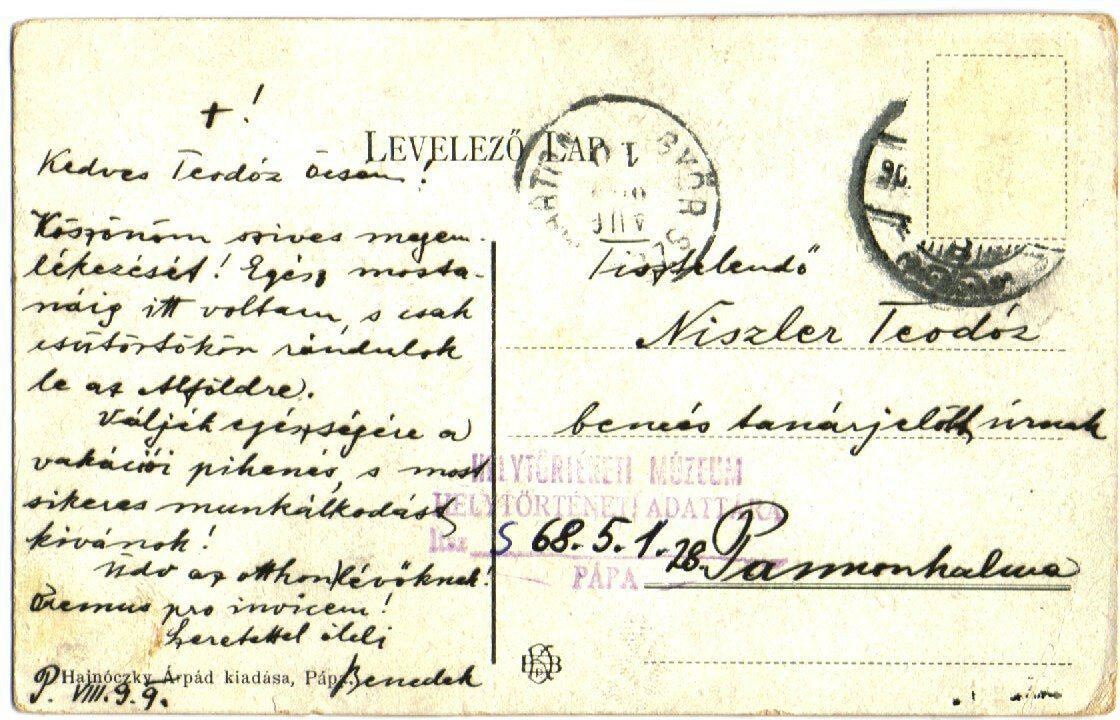 +!
LEVELEZŐ LAP
Kedves Teodóz öcsém!
Köszönöm szives megem-
lékezését! Egész mosta-
náig itt voltam, s csak
csütörtökön rándulok
le az Alföldre.
Váljék egészségére a
vakációi pihenés, s most
sikeres munkálkodást
kivánok!
Üdv az otthon lévőknek!
Oremus pro invicem!
Szeretettel öleli
Benedek
P. VIII. 9. 9.
Hajnóczky Árpád kiadása, Pápa.
GYŐR SZ MÁRTON
AUG
Tisztelendő
Niszler Teodóz
bencés tanárjelölt úrnak
Pannonhalma
HELYTÖRTÉNETI MÚZEUM
HELYTÖRTÉNETI ADATTÁRA
S 68.5.1.28.
PÁPA